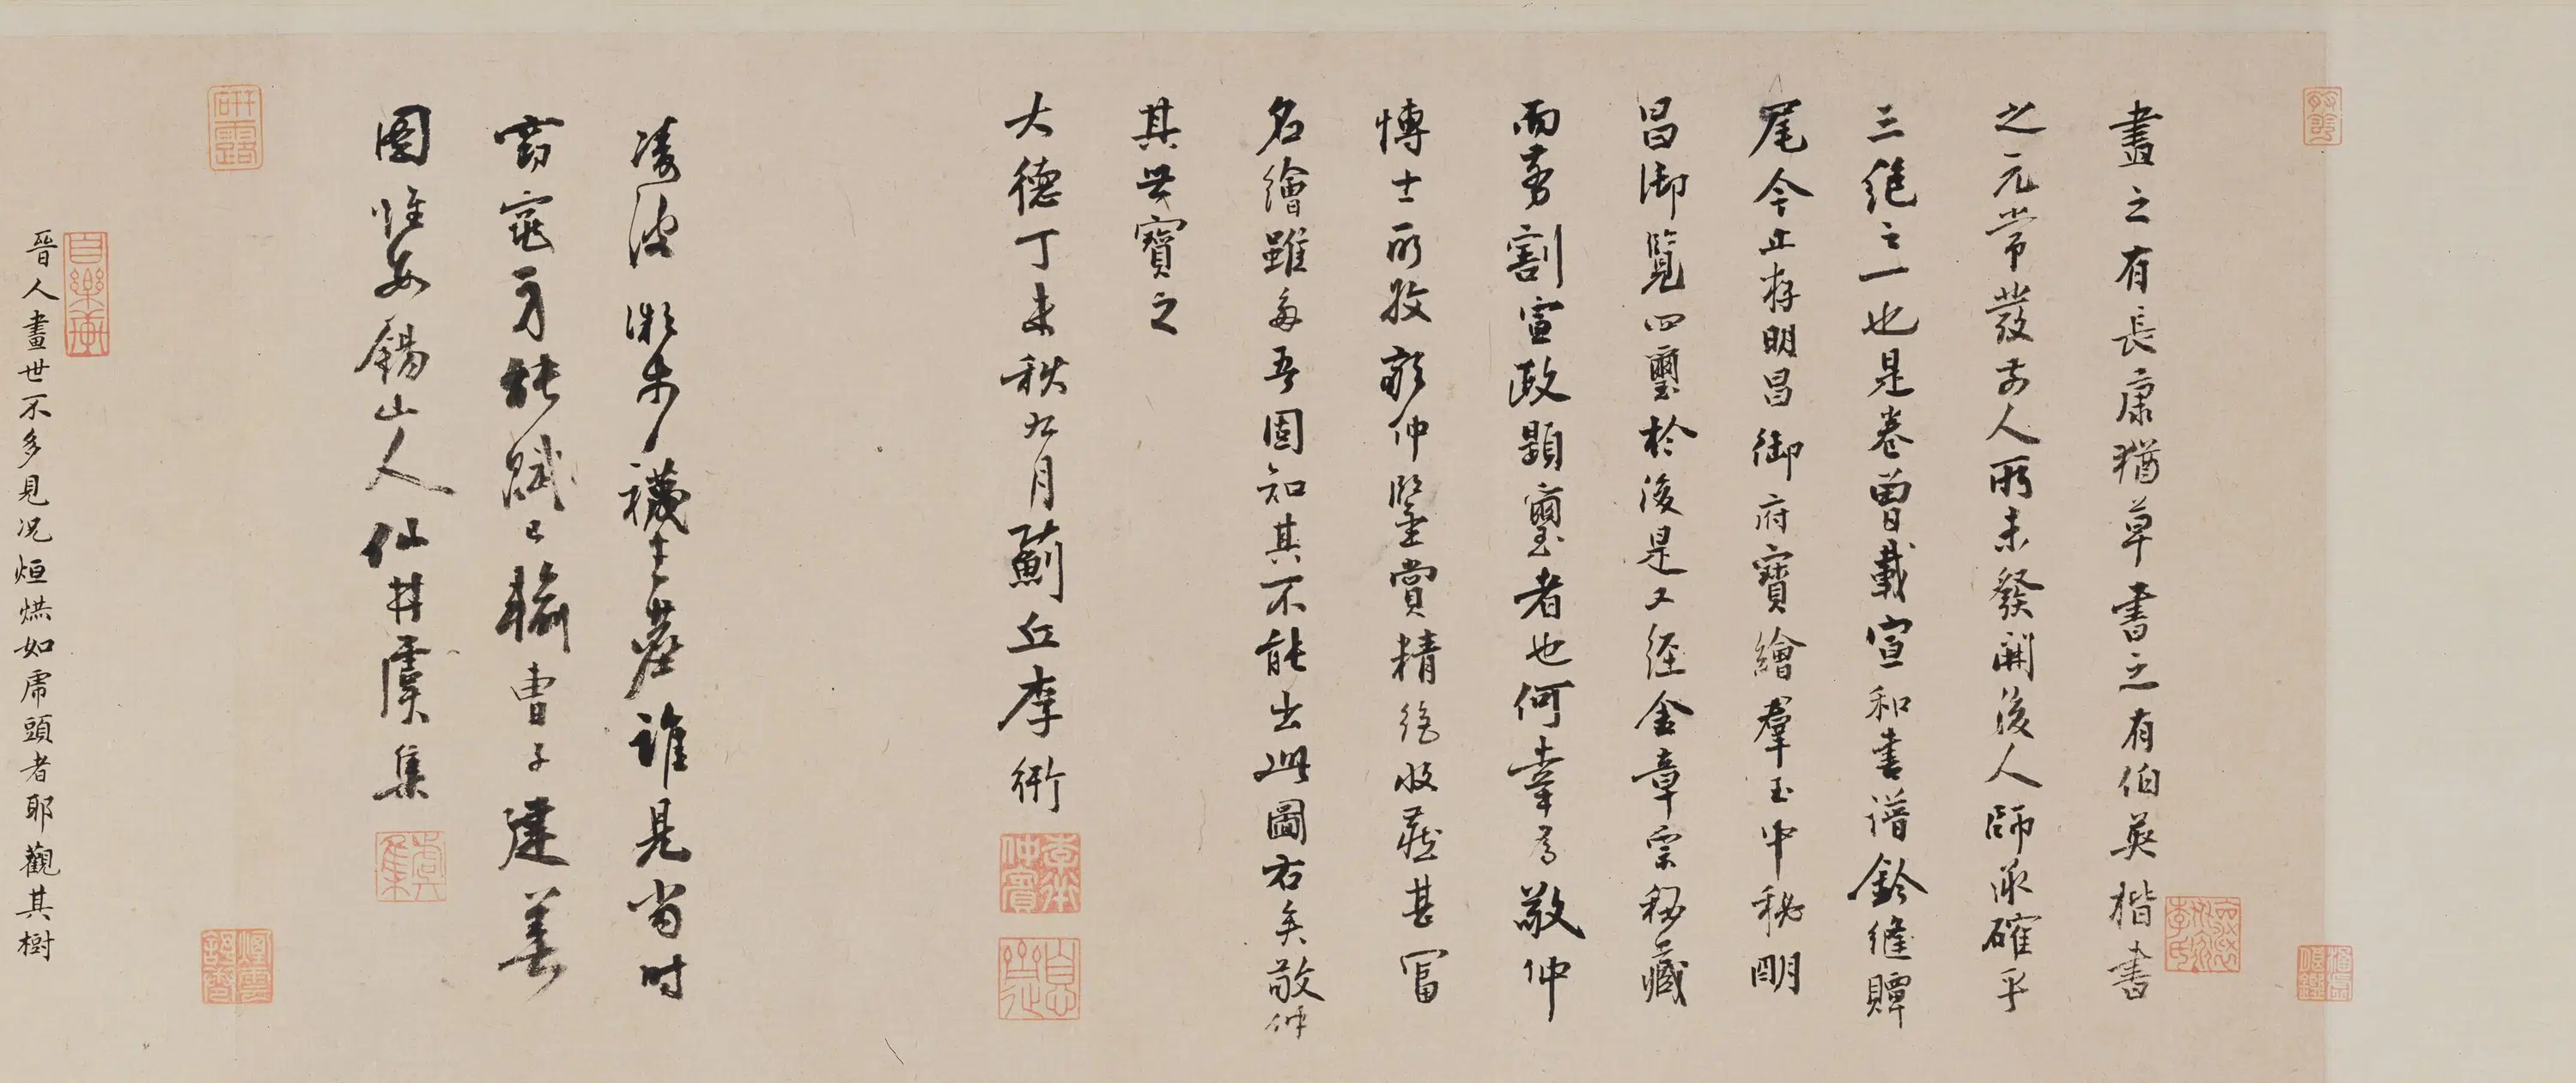 畫之有長康猶草書之有伯英楷書
之元常發前人所未發開後人師承確乎
三絕之一也是卷曾載宣和書譜鈐縫贉
尾今止存明昌御府寶繪羣玉中秘明
昌御覽四璽於後是又經金章宗秘藏
而剪割宣政題璽者也何幸為敬仲
博士所收敬仲鑒賞精絕收藏甚富
名繪雖多吾固知其不能出此圖右矣敬仲
其世寶之
大德丁未秋九月薊丘李衎
李衎仲賓
息齋
凌波微步襪生塵誰見當時
窈窕身能賦已輸曹子建善
圖惟女錫山人仙井虞集
虞集
晉人畫世不多見況烜烘如虎頭者耶觀其樹
研露
自樂軒